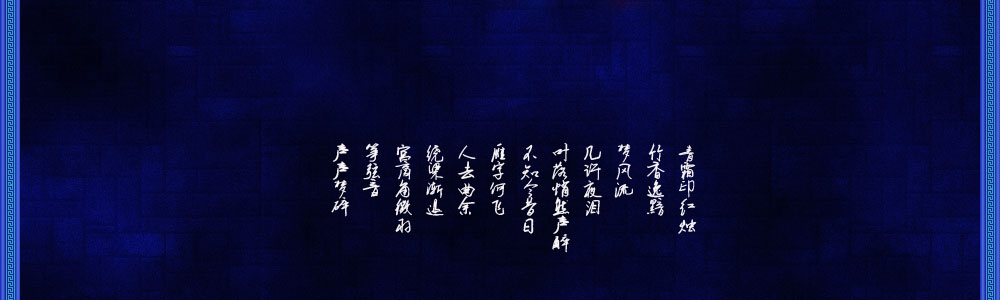 青霜印红烛
竹香逸黯
梦风流
几许夜泪
叶落悄然声醉
不知今昔日
雁字何飞
人去曲余
绕梁渐退
宫商角微羽
筝弦音
声声梦碎